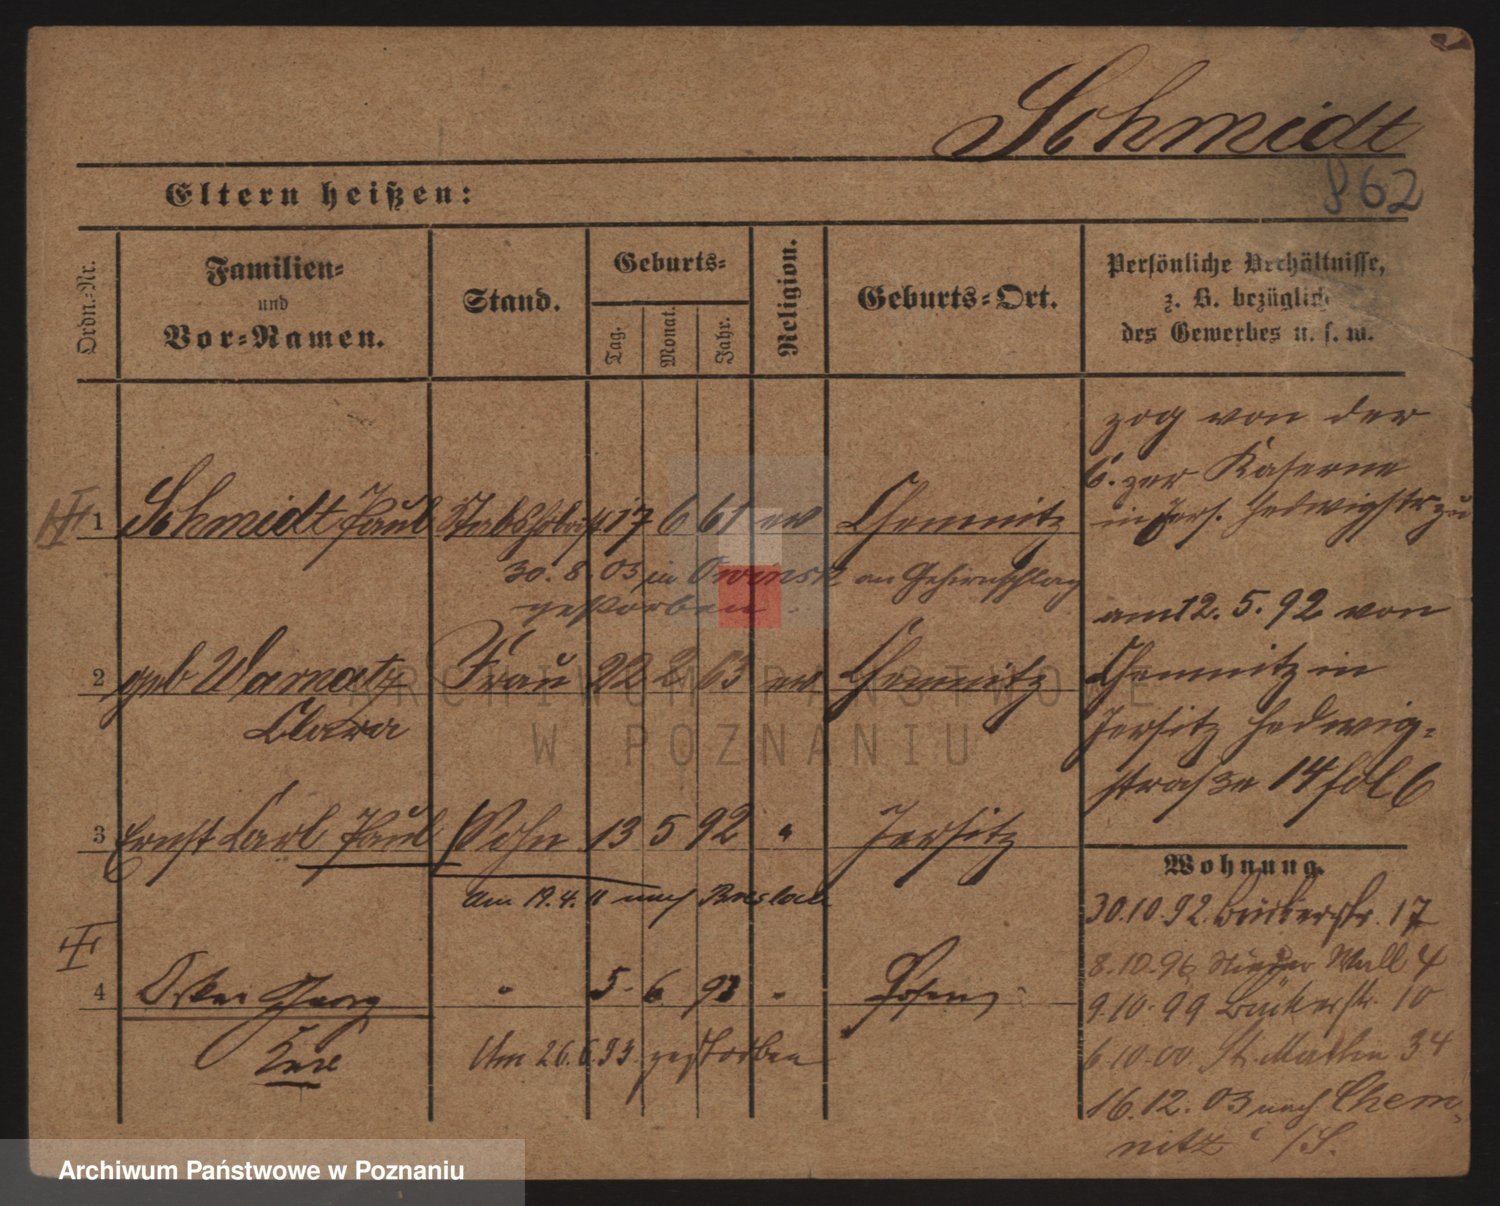 Schmidt
862
Eltern heißen:
Ordn.-Nr.
Familien-
und
Vor-Namen.
Stand.
Geburts-
Tag.
Monat.
Jahr.
Religion.
Geburts-Ort.
Persönliche Verhältnisse,
z. B. bezüglich
des Gewerbes u. s. w.
zog von der
6. zur Kaserne
in Jers. Hedwigstr zu
1 Schmidt Paul 17 6 61 ev Chemnitz
30. 8. 03 in Owinsk an Gehirnschlag
gestorben
am 12. 5. 92 von
Chemnitz in
Jersitz Hedwig-
straße 14 fol 6
2 geb Warnatz Frau 22 2 63 ev Chemnitz
Clara
3 Ernst Carl Paul Sohn 13 5 92 " Jersitz
Am 19. 4. 11 nach Breslau
Wohnung.
30.10.92. 17
8.10.96 Nieder Wall 4
9.10.99 Bäckerstr. 10
6.10.00 St. Martin 34
16.12.03 nach Chem-
nitz /S.
4 Georg " 5 6 93 " Posen
Am 26.6.93 gestorben
ARCHIWUM PAŃSTWOWE
W POZNANIU
Archiwum Państwowe w Poznaniu